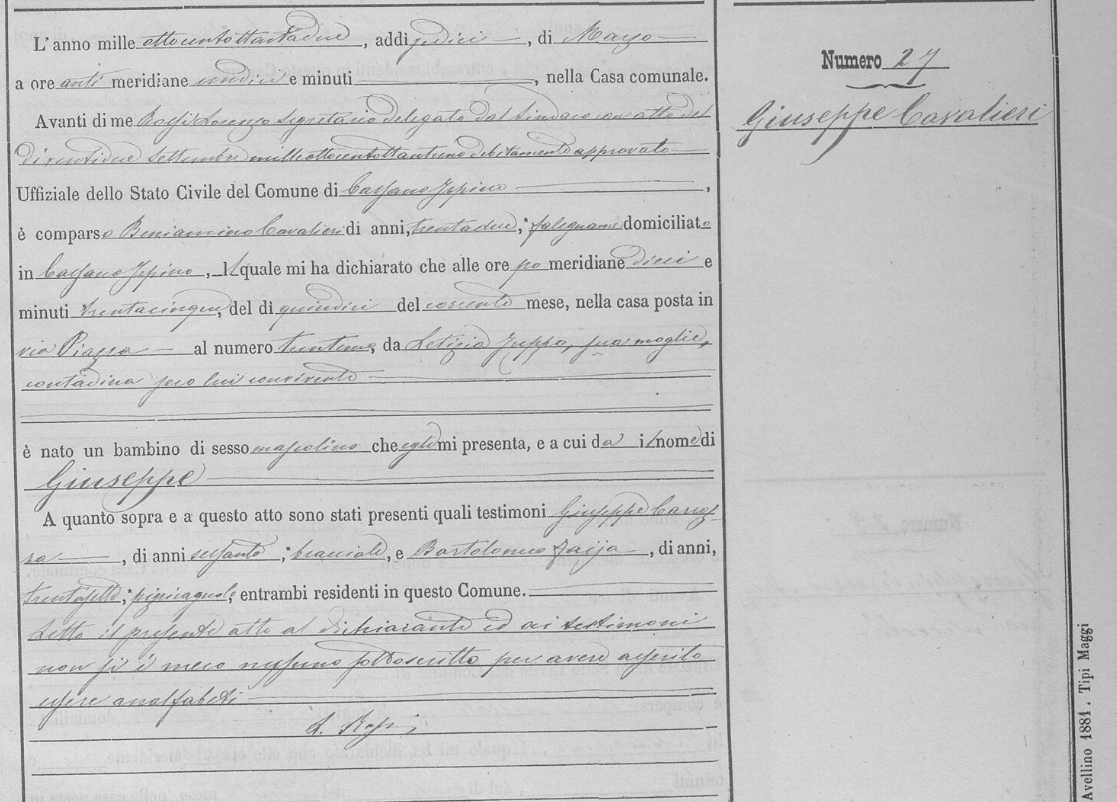 L'anno mille ottocentottantadue, addì sedici, di Maggio
a ore anti meridiane undici e minuti, nella Casa comunale.
Avanti di me Rossi Lorenzo Segretario delegato dal Sindaco con atto del
di ventidue Settembre milleottocentottantuno debitamente approvato
Uffiziale dello Stato Civile del Comune di Cassano Irpino,
è comparso Beniamino Cavalieri di anni, trentadue, falegname domiciliato
in Cassano Irpino, il quale mi ha dichiarato che alle ore po meridiane dieci e
minuti trentacinque, del dì quindici del corrente mese, nella casa posta in
via Piazza al numero trentuno, da Letizia Zuppa, sua moglie,
contadina seco lui convivente
è nato un bambino di sesso mascolino che egli mi presenta, e a cui da il nome di
Giuseppe
A quanto sopra e a questo atto sono stati presenti quali testimoni Giuseppe
, di anni sessanta, bracciale, e Bartolomeo, di anni,
trentasette, pizzicagnolo, entrambi residenti in questo Comune.
Letto il presente atto al dichiarante ed ai testimoni
non si è meco nessuno sottoscritto per avere asserito
essere analfabeti
L. Rossi
Numero 27
Giuseppe Cavalieri
Avellino 1881. Tipi Maggi